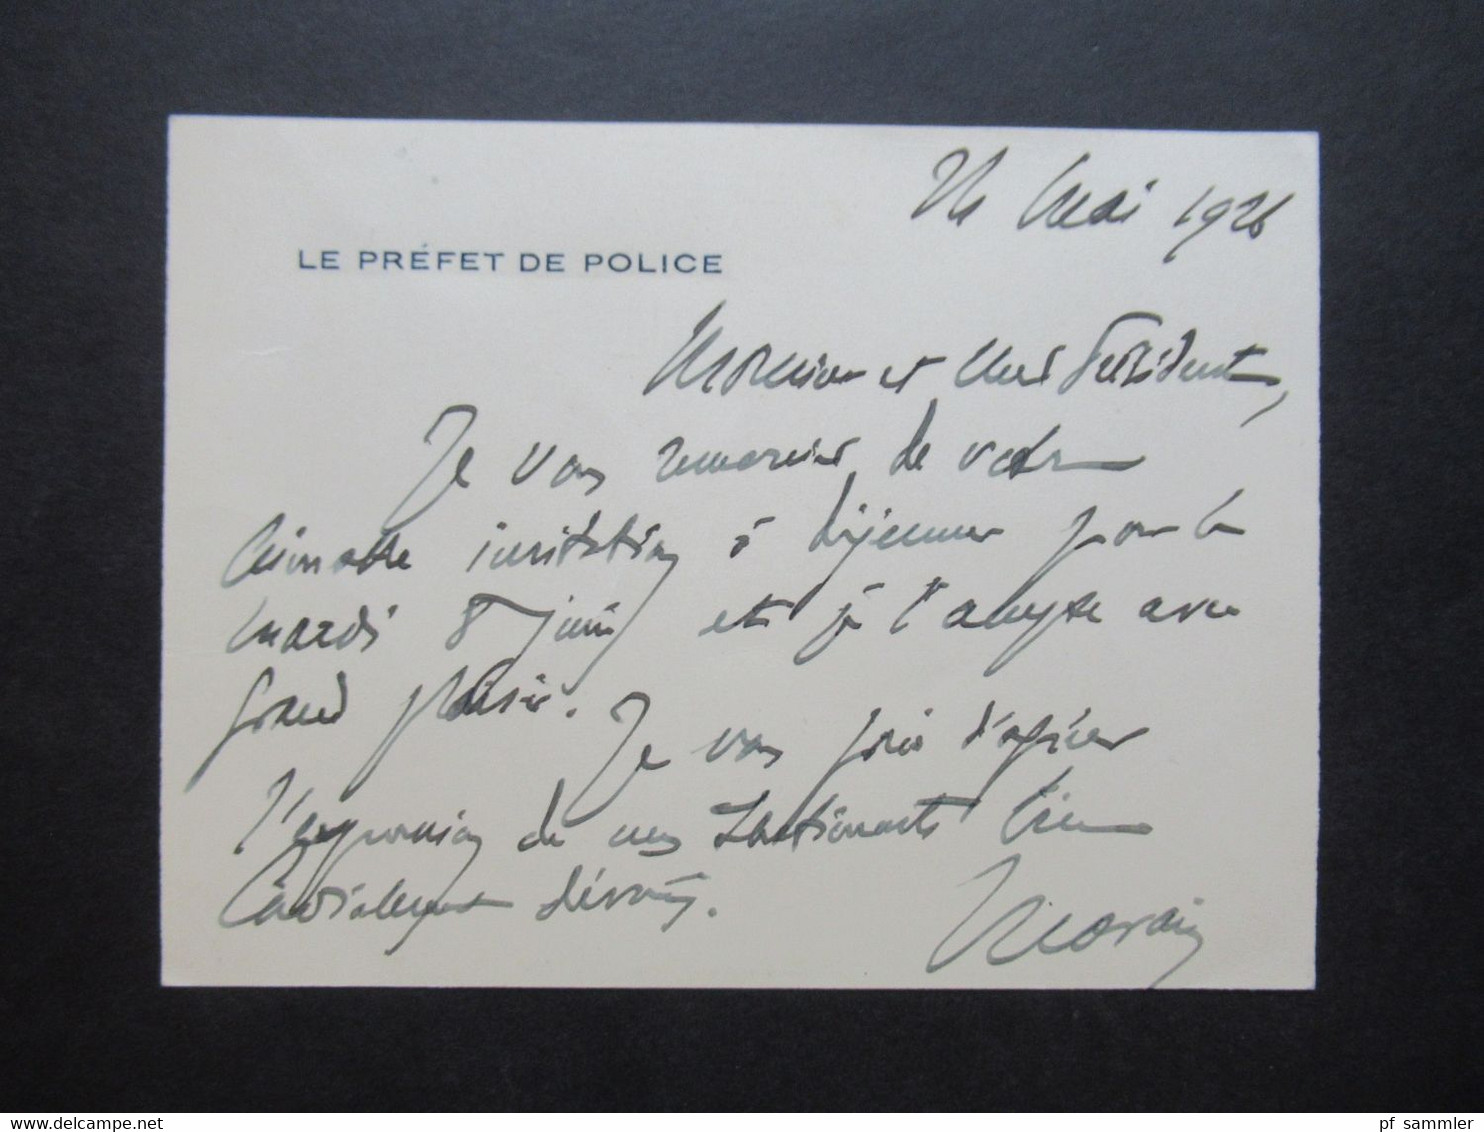 24 Mai 1926
LE PRÉFET DE POLICE
Monsieur et cher Président,
Je vous remercie de votre
aimable invitation à déjeuner pour le
mardi 8 juin et je l'accepte avec
grand plaisir.
Je vous prie d'agréer
l'expression de mes sentiments bien
cordialement dévoués.
Morain
pf_sammler